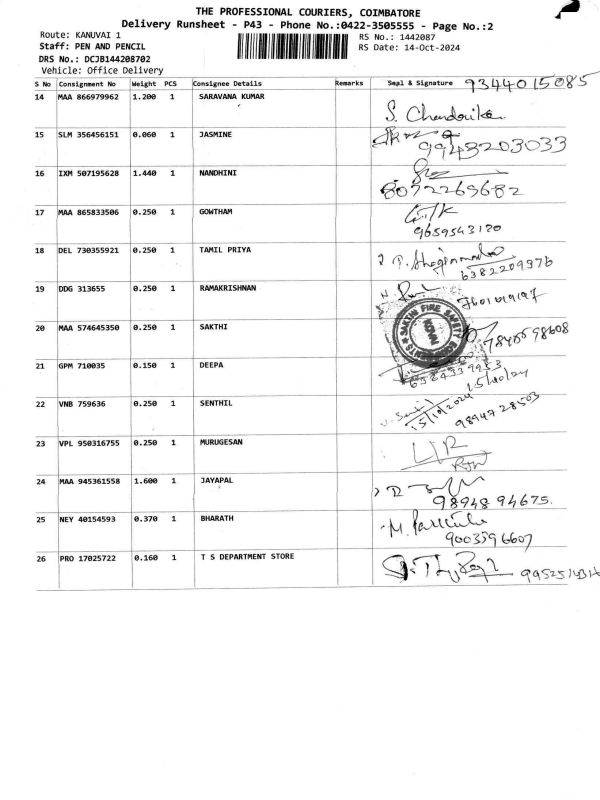 THE PROFESSIONAL COURIERS, COIMBATORE
Delivery Runsheet - P43 - Phone No.:0422-3505555 - Page No.:2
Route: KANUVAI 1 RS No.: 1442087
Staff: PEN AND PENCIL RS Date: 14-Oct-2024
DRS No.: DCJB144208702
Vehicle: Office Delivery
S No Consignment No Weight PCS Consignee Details Remarks Seal & Signature 9344015085
14 MAA 866979962 1.200 1 SARAVANA KUMAR
S. Chandrika
15 SLM 356456151 0.060 1 JASMINE
9943203033
16 IXM 507195628 1.440 1 NANDHINI
8072269682
17 MAA 865833506 0.250 1 GOWTHAM
9659543120
18 DEL 730355921 0.250 1 TAMIL PRIYA
6382209976
19 DDG 313655 0.250 1 RAMAKRISHNAN
20 MAA 574645350 0.250 1 SAKTHI
SAKTHI FIRE SAFETY
21 GPM 710035 0.150 1 DEEPA
6384339953
15/10/24
22 VNB 759636 0.250 1 SENTHIL
15/10/2024
9894728503
23 VPL 950316755 0.250 1 MURUGESAN
24 MAA 945361558 1.600 1 JAYAPAL
98948 94675.
25 NEY 40154593 0.370 1 BHARATH
9003596607
26 PRO 17025722 0.160 1 T S DEPARTMENT STORE